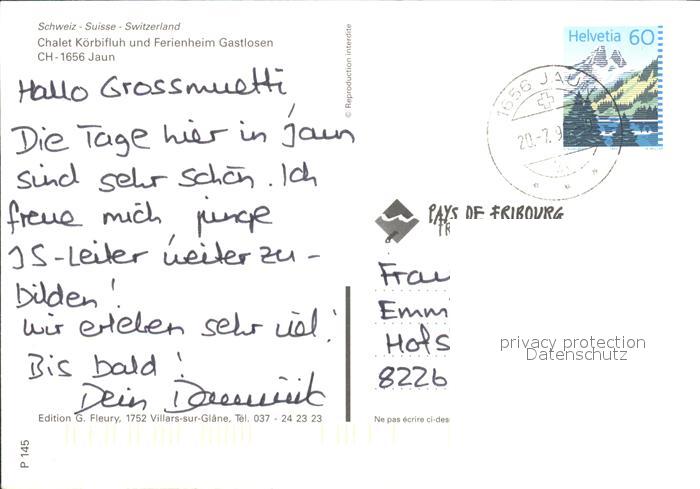 Schweiz - Suisse - Switzerland
Chalet Körbifluh und Ferienheim Gastlosen
CH-1656 Jaun
Hallo Grossmuetti
Die Tage hier in Jaun
sind sehr schön. Ich
freue mich junge
JS-Leiter weiterzu-
bilden!
wir erleben sehr viel!
Bis bald!
Dein Dominik
Edition G. Fleury, 1752 Villars-sur-Glâne, Tél. 037 - 24 23 23
P 145
© Reproduction interdite
Helvetia 60
1656 JAUN
20.-7.9
PAYS DE FRIBOURG
Frau
Emmi
Hofs
8226
Ne pas écrire ci-des
privacy protection
Datenschutz